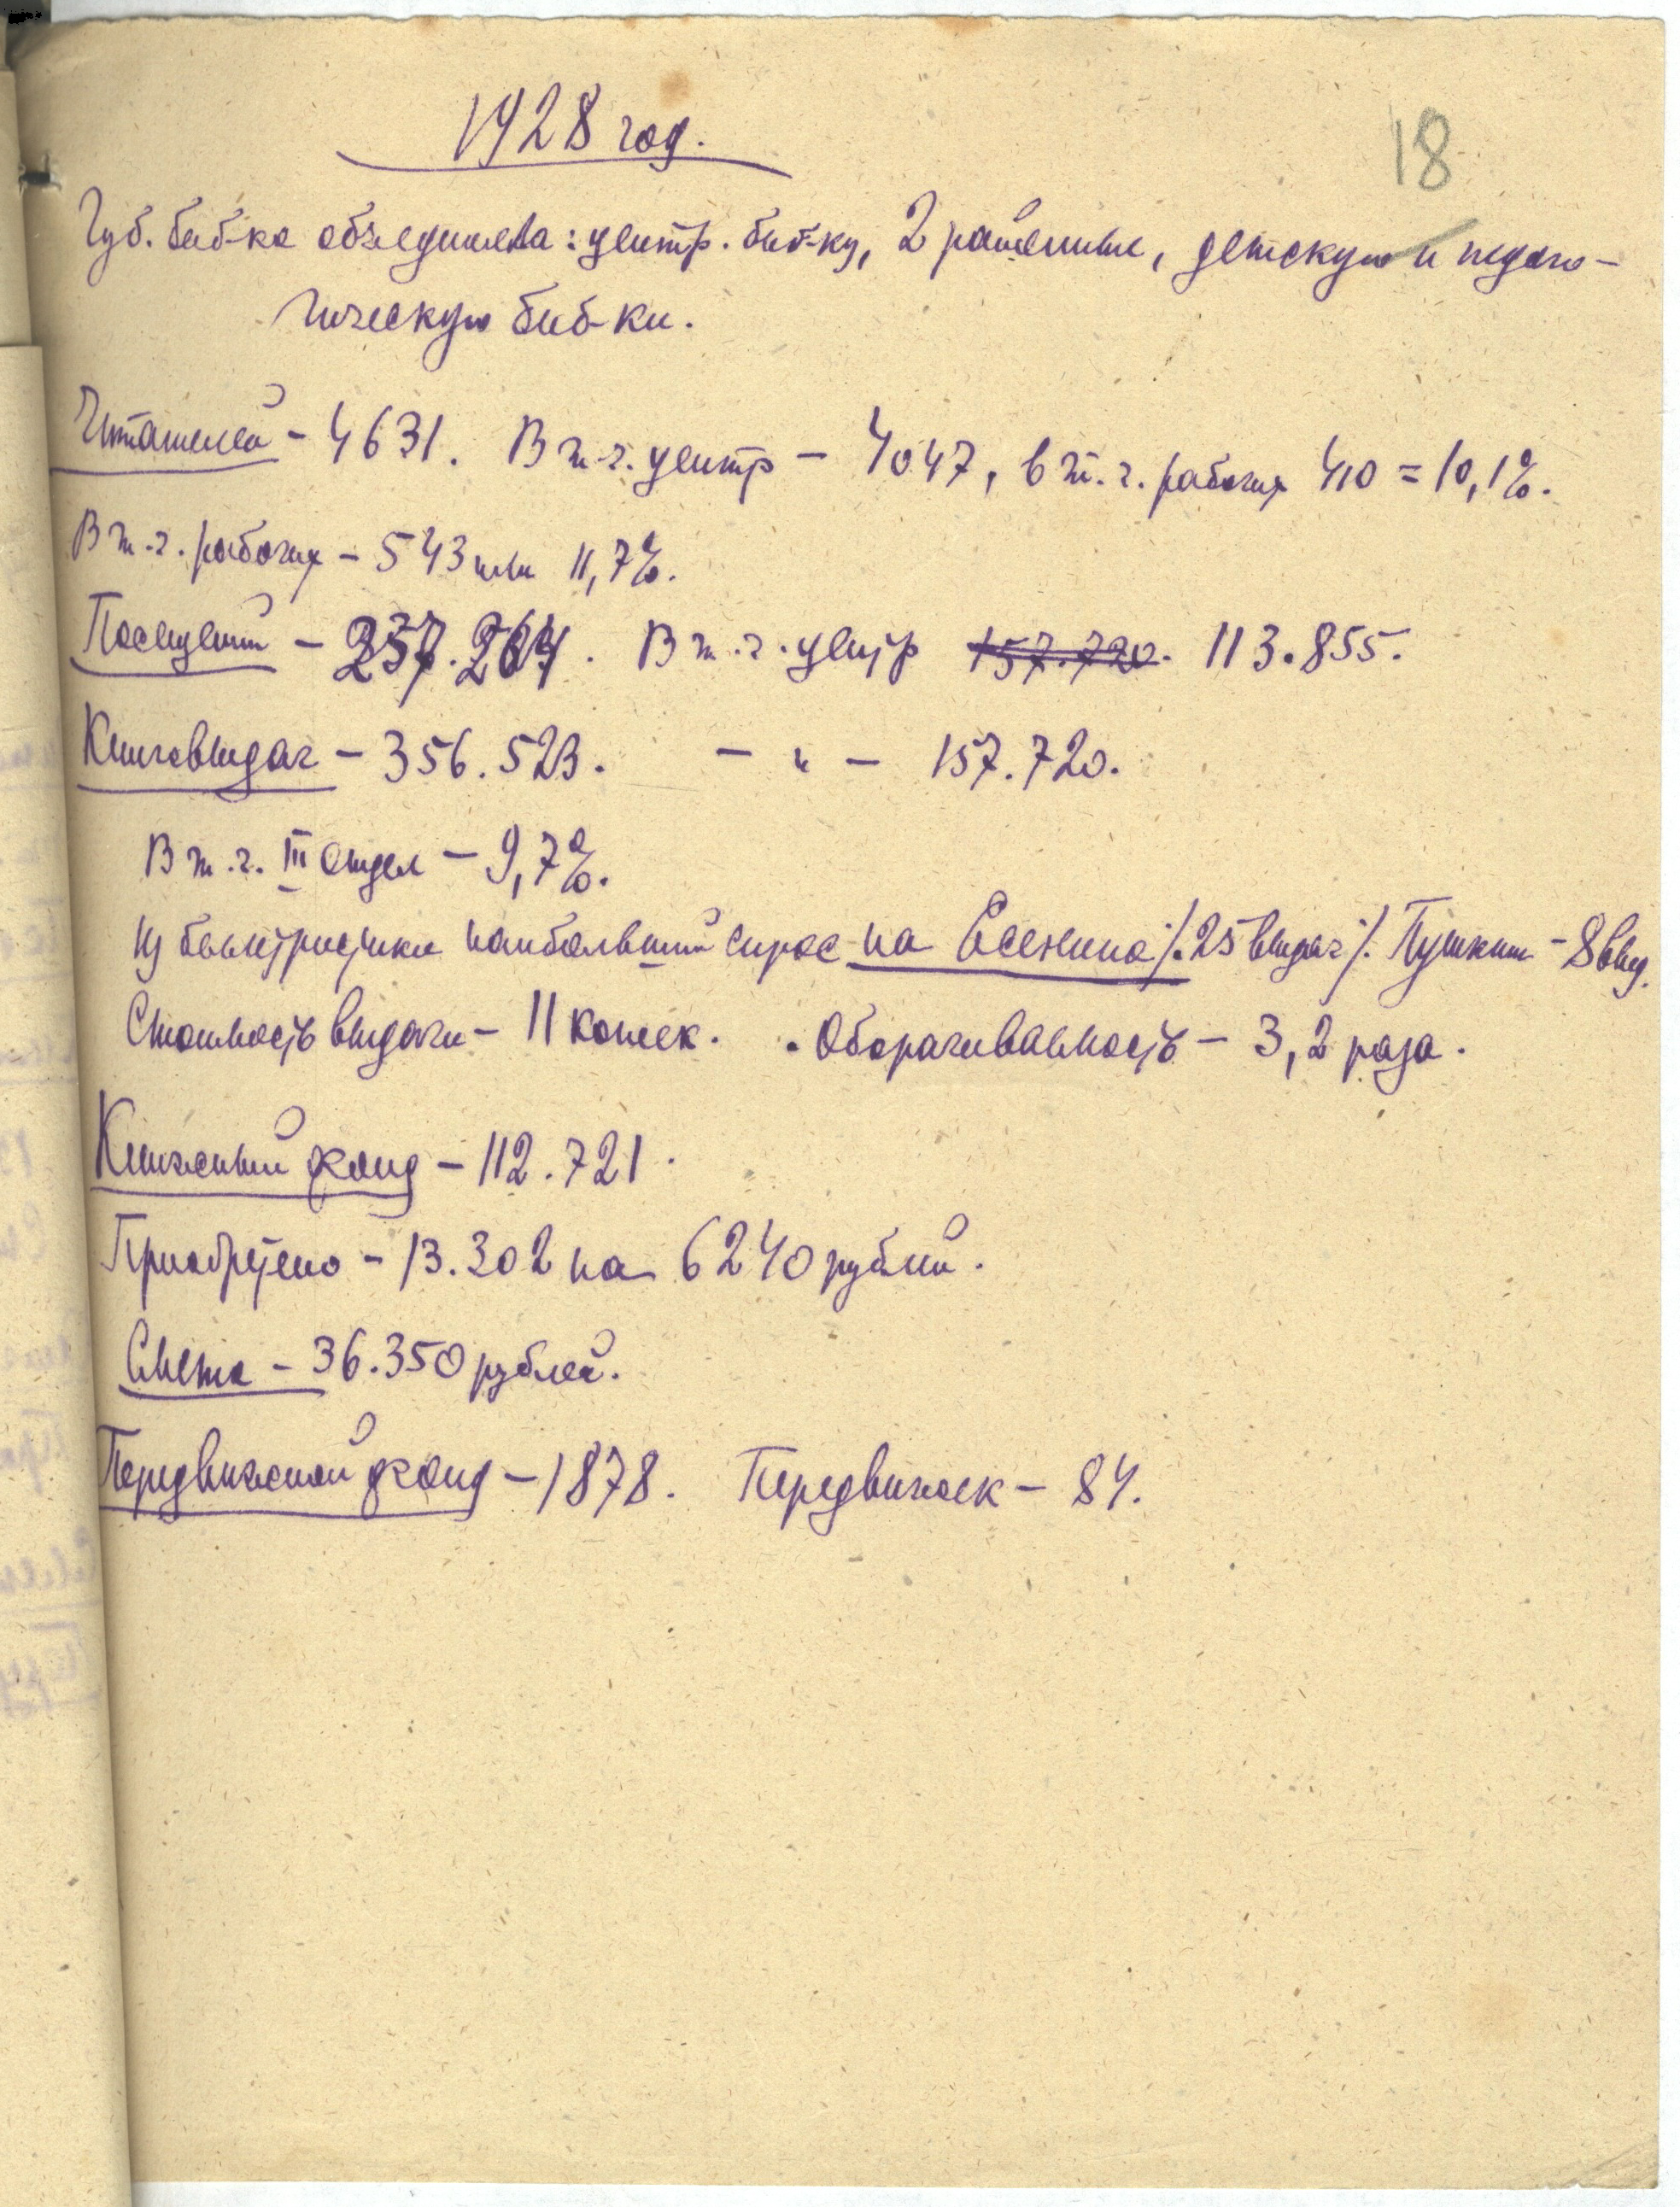 1928 год.
18
Губ. биб-ка объединяла: центр. биб-ку, 2 районные, детскую и педаго-
гическую биб-ки.
Читателей - 4631. В т.ч. центр - 4047, в т.ч. рабочих 410 = 10,1%.
В т.ч. рабочих - 543 или 11,7%.
Посещений - . В т.ч. центр 157.720. 113.855.
Книговыдач - 356.523. - " - 157.720.
В т.ч. III отдел - 9,7%.
Из беллетристики наибольший спрос на Есенина /.25 выдач/. Пушкин - 8 выд.
Стоимость выдачи - 11 копеек. Оборачиваемость - 3,2 раза.
Книжный фонд - 112.721.
Приобретено - 13.302 на 6240 рублей.
Смета - 36.350 рублей.
Передвижной фонд - 1878. Передвижек - 84.